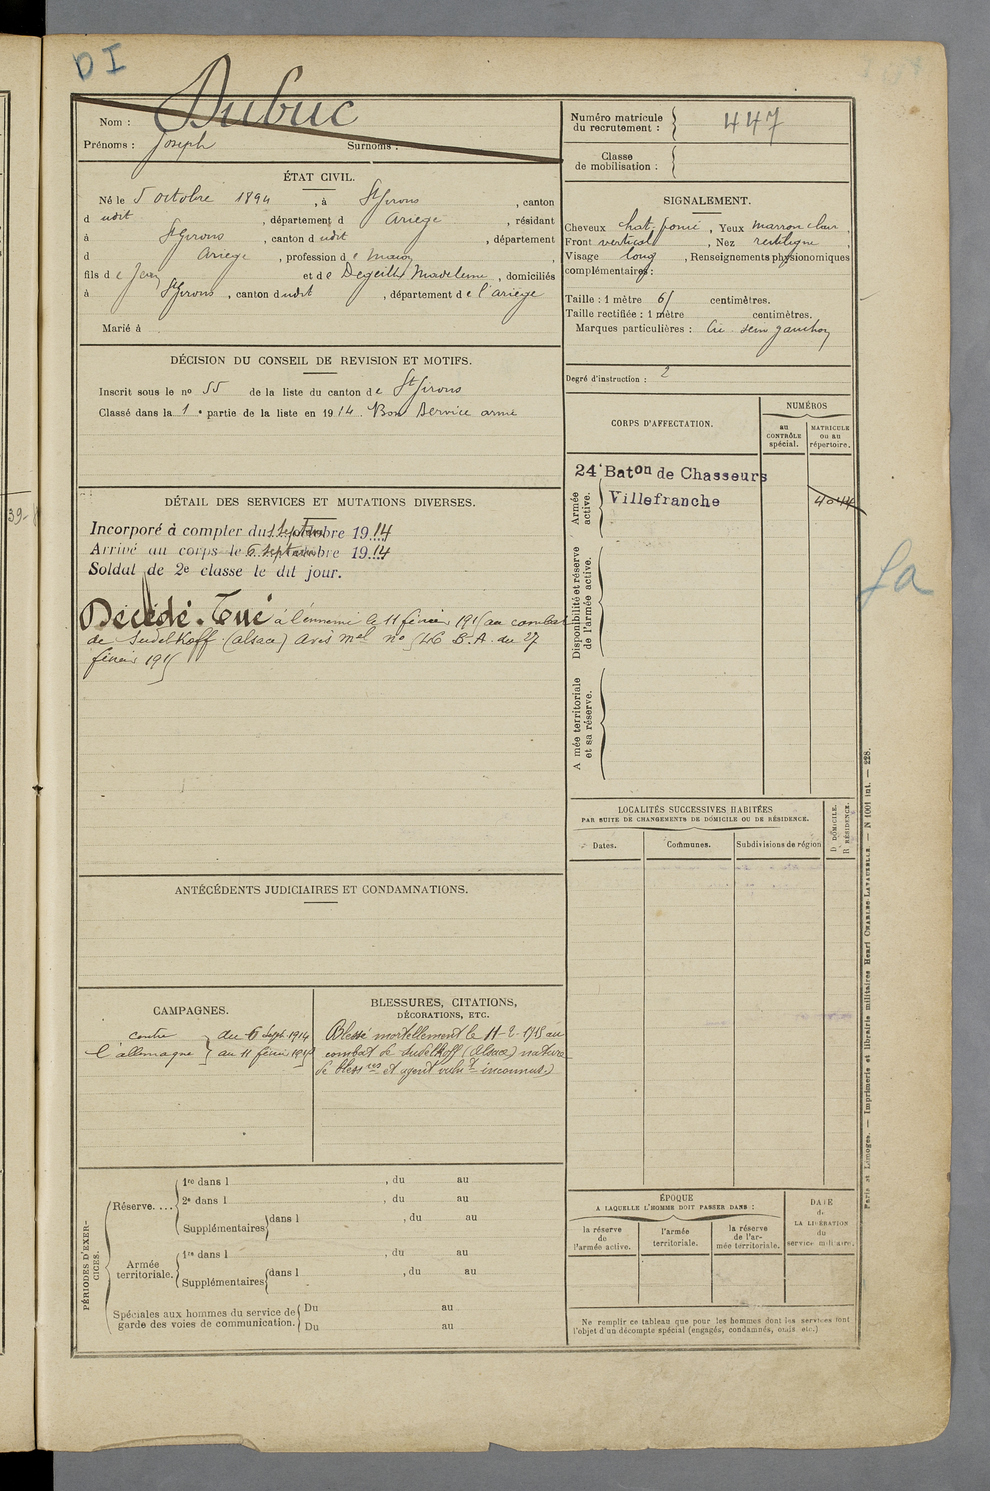 DI
Nom : Dubuc
Prénoms : Joseph Surnoms :
Numéro matricule du recrutement : 447
Classe de mobilisation :
ÉTAT CIVIL.
Né le 5 octobre 1894, à St Girons, canton
d udit, département d Ariège, résidant
à St Girons, canton d udit, département
d Ariège, profession d e
fils d e Jean et d e Degeilh Madeleine, domiciliés
à St Girons, canton d udit, département d e l'ariège
Marié à
SIGNALEMENT.
Cheveux chat. foncé, Yeux marron clair,
Front vertical, Nez rectiligne,
Visage long, Renseignements physionomiques
complémentaires :
Taille : 1 mètre 61 centimètres.
Taille rectifiée : 1 mètre centimètres.
Marques particulières : sein gauche
Degré d'instruction : 2
DÉCISION DU CONSEIL DE REVISION ET MOTIFS.
Inscrit sous le no 55 de la liste du canton de St Girons
Classé dans la 1e partie de la liste en 1914. Bon Service armé
CORPS D'AFFECTATION.
NUMÉROS
au CONTRÔLE spécial.
MATRICULE ou au répertoire.
24e Baton de Chasseurs
Villefranche
4044
Armée active.
Disponibilité et réserve de l'armée active.
Armée territoriale et sa réserve.
DÉTAIL DES SERVICES ET MUTATIONS DIVERSES.
Incorporé à compter du 1 Septembre 1914
Arrivé au corps le 6 Septembre 1914
Soldat de 2e classe le dit jour.
Décédé. Tué à l'ennemi le 11 février 1915 au combat
de Sudelkoff (alsace) avis mel no 546 B.A. du 27
février 1915
39-
fa
LOCALITÉS SUCCESSIVES HABITÉES
PAR SUITE DE CHANGEMENTS DE DOMICILE OU DE RÉSIDENCE.
Dates. Communes. Subdivisions de région
D DOMICILE.
R RÉSIDENCE.
ANTÉCÉDENTS JUDICIAIRES ET CONDAMNATIONS.
CAMPAGNES.
contre l'allemagne
du 6 Sept. 1914
au 11 février 1915
BLESSURES, CITATIONS,
DÉCORATIONS, ETC.
Blessé mortellement le 11-2-1915 au
combat de Sudelkoff (Alsace) nature
de blessres et agent vulnt inconnus)
PÉRIODES D'EXERCICES.
Réserve....
1re dans l , du au
2e dans l , du au
Supplémentaires dans l , du au
Armée territoriale.
1re dans l , du au
Supplémentaires dans l , du au
Spéciales aux hommes du service de
garde des voies de communication.
Du au
Du au
ÉPOQUE
A LAQUELLE L'HOMME DOIT PASSER DANS :
la réserve de l'armée active.
l'armée territoriale.
la réserve de l'armée territoriale.
DATE de LA LIBÉRATION du service militaire.
Ne remplir ce tableau que pour les hommes dont les services font
l'objet d'un décompte spécial (engagés, condamnés, omis etc.)
Paris et Limoges. — Imprimerie et librairie militaires Henri CHARLES-LAVAUZELLE. — N 1001 int. — 228.